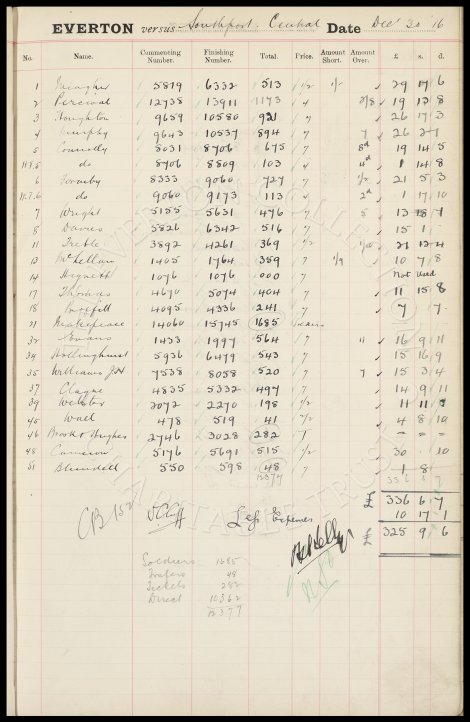 EVERTON versus Southport Central Date Decr 30 '16
No. Name. Commenting Number. Finishing Number. Total. Price. Amount Short. Amount Over. £ s. d.
1 Meagher 5819 6332 513 1/2 1/- 29 17 6
2 Percival 12738 13911 1173 4 2/8 19 13 8
3 Houghton 9659 10580 921 7 26 17 3
4 Murphy 9643 10537 894 7 7 26 2 1
5 Connolly 8031 8706 675 7 8d 19 14 5
No. 5 do 8706 8809 103 4 4d 1 14 8
6 Formby 8333 9060 727 7 1/2 21 5 3
No. 6 do 9060 9173 113 4 2d 1 17 10
7 Wright 5155 5631 476 7 5 13 18 1
8 Davies 5826 6342 516 7 15 1
11 Treble 3892 4261 369 1/2 21 12 4
13 McLellan 1405 1764 359 7 1/9 10 7 8
14 Hignett 1076 1076 000 7 Not used
17 Thomas 4670 5074 404 7 11 15 8
18 Parfitt 4095 4336 241 7 7 7
21 Makepeace 14060 15745 1685 Soldiers
32 Evans 1433 1997 564 7 11 16 9 11
34 Hollinghurst 5936 6479 543 7 15 16 9
35 Williams JH 7538 8058 520 7 7 15 3 4
37 Clague 4835 5332 497 7 14 9 11
39 Webster 2072 2270 198 1/2 11 11
45 Wall 478 519 41 7/2 4 8 10
46 Brook & Hughes 2746 3028 282 - - -
48 Cameron 5176 5691 515 1/2 30 10
51 Blundell 550 598 48 7 1 8
12377 336 6 7
£ 336 6 7
CB 152 Less Expenses 10 17 1
£ 325 9 6
Soldiers 1685
48
Tickets 282
Direct 10362
12377
EVERTON COLLECTION
CHARITABLE TRUST